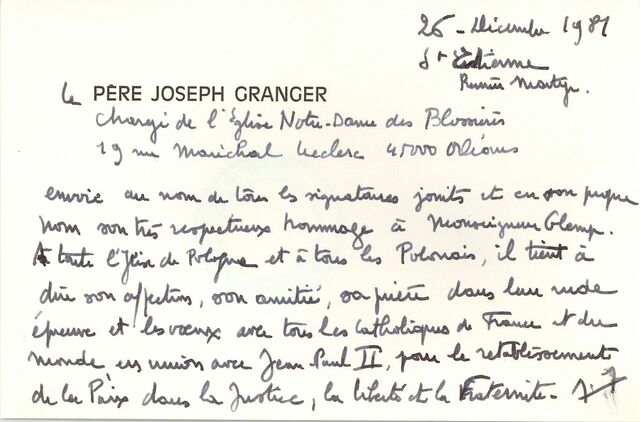 26 - Décembre 1981
St Etienne
Premier Martyr.
le PÈRE JOSEPH GRANGER
chargé de l'Eglise Notre-Dame des Blossières
19 rue Maréchal Leclerc 45000 Orléans
envoie au nom de tous les signataires joints et en son propre
nom son très respectueux hommage à Monseigneur Glemp.
A toute l'Eglise de Pologne et à tous les Polonais, il tient à
dire son affection, son amitié, sa prière dans leur rude
épreuve et les vœux avec tous les catholiques de France et du
monde, en union avec Jean Paul II, pour le rétablissement
de la Paix dans la Justice, la liberté et la Fraternité -